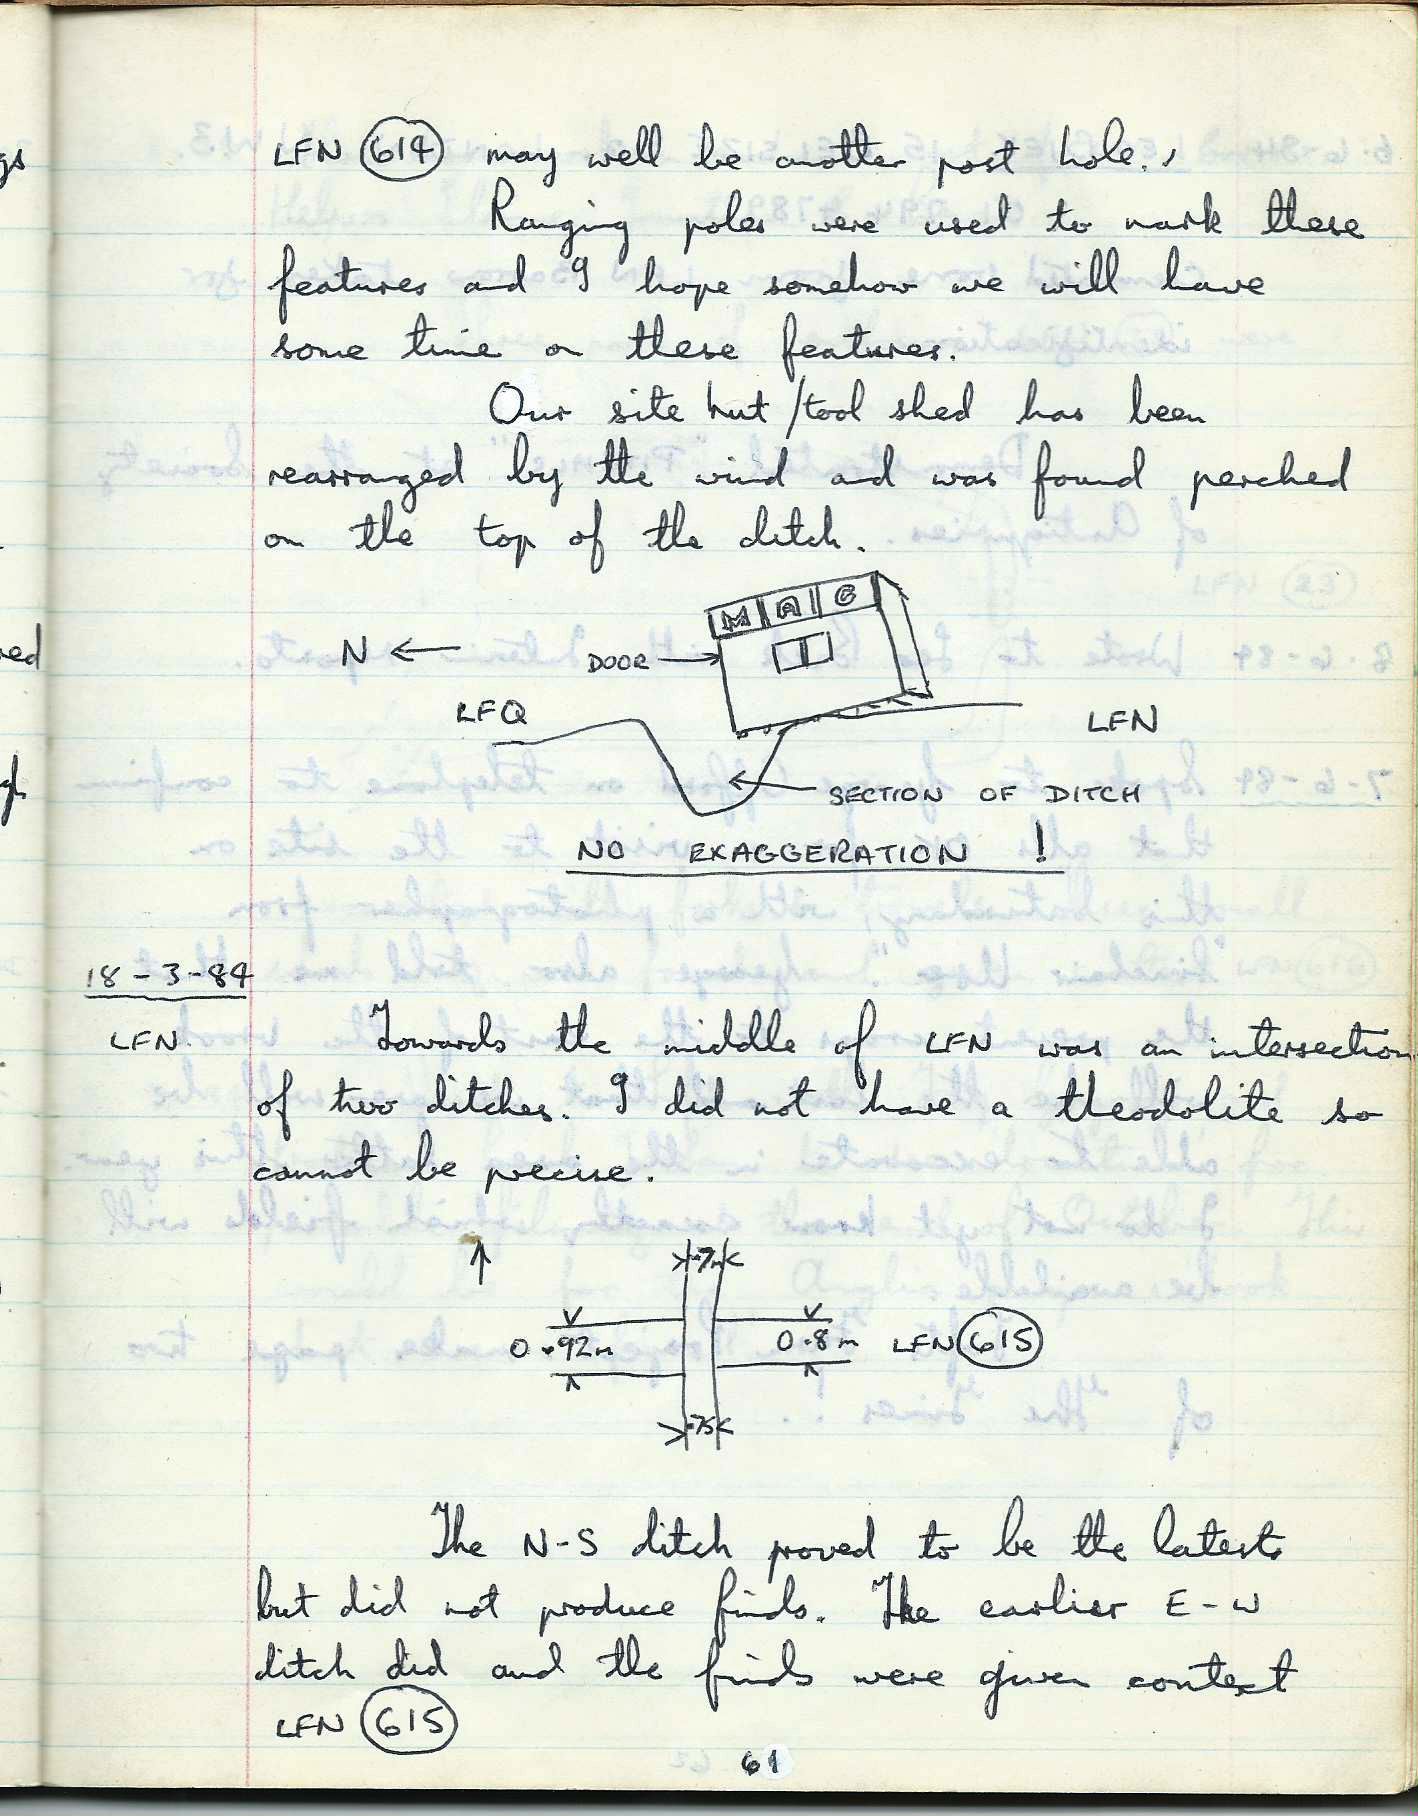 LFN 614 may well be another post hole.
Ranging poles were used to mark these
features and I hope somehow we will have
some time on these features.
Our site hut/tool shed has been
rearranged by the wind and was found perched
on the top of the ditch.
M A G
N
DOOR
LFQ
LFN
SECTION OF DITCH
NO EXAGGERATION !
18-3-84
LFN. Towards the middle of LFN was an intersection
of two ditches. I did not have a theodolite so
cannot be precise.
.7m
0.92m 0.8m LFN 615
.75
The N-S ditch proved to be the latest
but did not produce finds. The earlier E-W
ditch did and the finds were given context
LFN 615
61